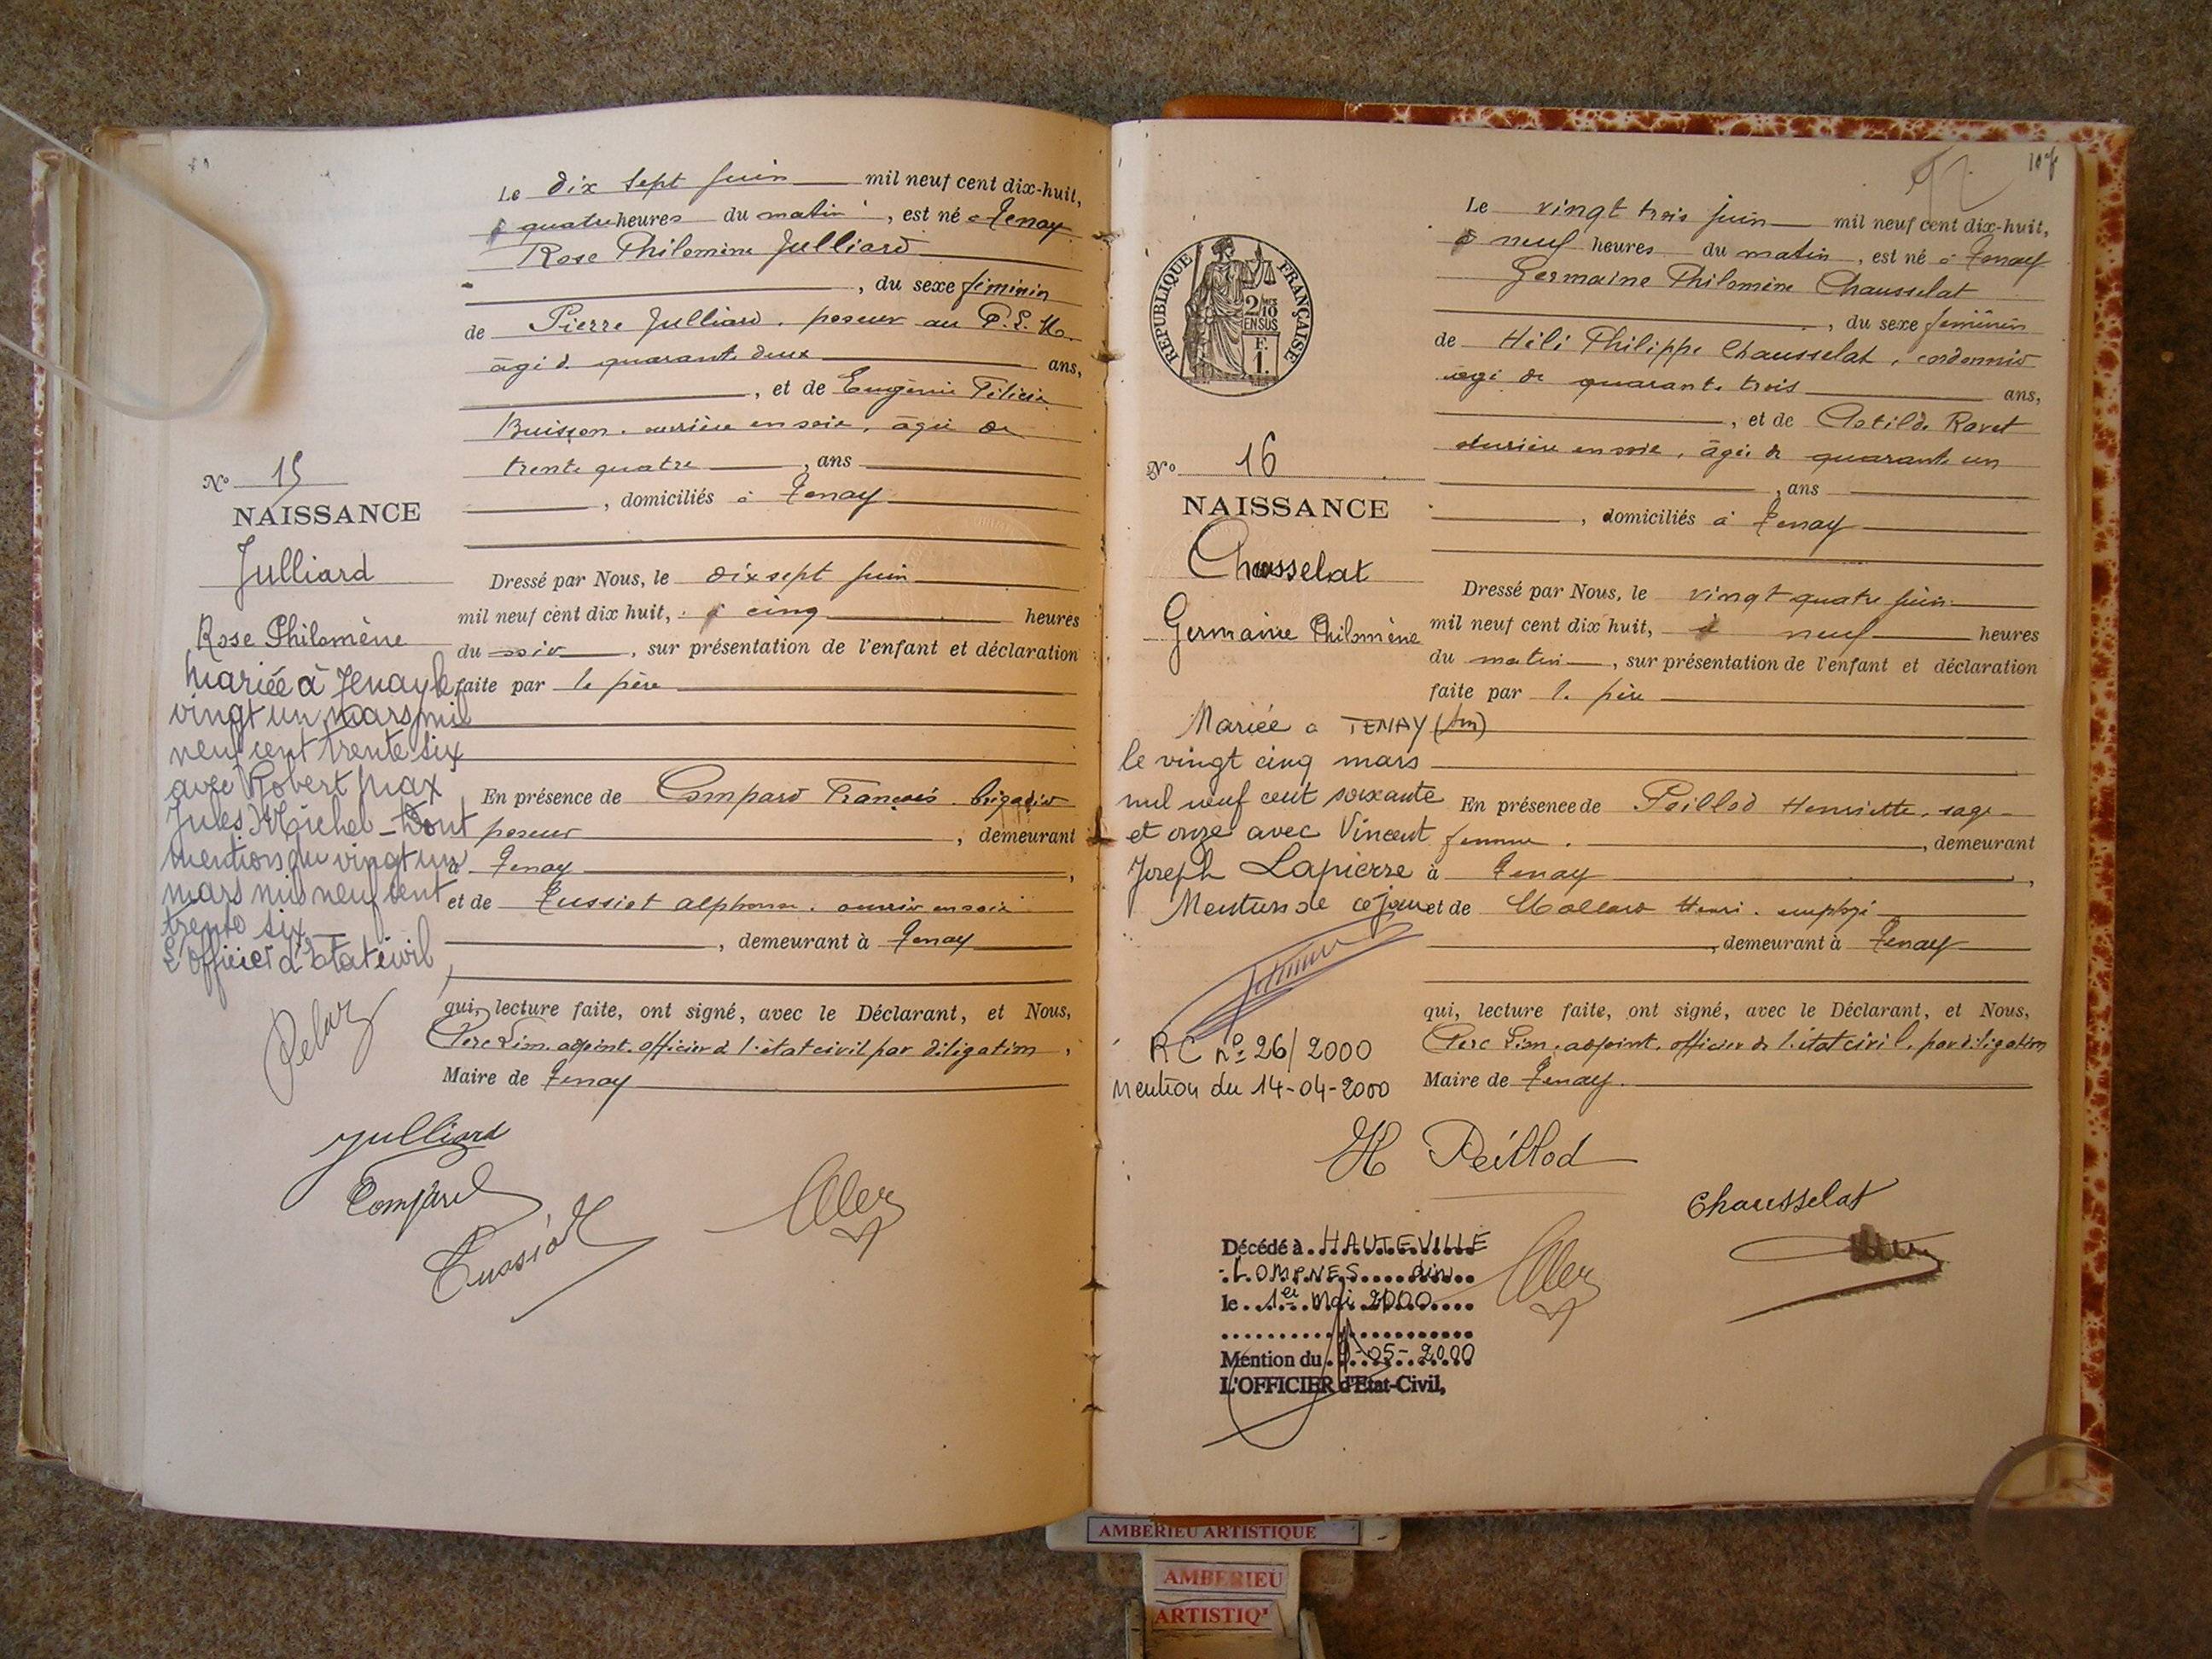 Le dix sept juin mil neuf cent dix-huit,
à quatre heures du matin, est né à Tenay
Rose Philomène Julliard
, du sexe féminin
de Pierre Julliard, poseur au P.L.M.
âgé de quarante deux ans,
, et de Eugénie Félicie
Buisson, ouvrière en soie, âgée de
trente quatre, ans
, domiciliés à Tenay
No 15
NAISSANCE
Julliard
Rose Philomène
Dressé par Nous, le dix sept juin
mil neuf cent dix huit, à cinq heures
du soir, sur présentation de l'enfant et déclaration
faite par le père
Mariée à Tenay le
vingt un mars mil
neuf cent trente six
avec Robert Max
Jules Michel - Dont
mention du vingt un
mars mil neuf cent
trente six
L'Officier d'Etat civil
En présence de Compard François, brigadier
poseur, demeurant
à Tenay,
et de Tussiot alphonse, ouvrier en soie
, demeurant à Tenay
qui, lecture faite, ont signé, avec le Déclarant, et Nous,
adjoint, officier de l'état civil par délégation,
Maire de Tenay
Julliard
107
Le vingt trois juin mil neuf cent dix-huit,
à neuf heures du matin, est né à Tenay
Germaine Philomène Chausselat
, du sexe féminin
de Héli Philippe Chausselat, cordonnier
âgé de quarante trois ans,
, et de Clotilde Ravet
ouvrière en soie, âgée de quarante un
, ans
, domiciliés à Tenay
REPUBLIQUE FRANÇAISE
2/10 EN SUS
F. 1.
No 16
NAISSANCE
Chausselat
Germaine Philomène
Dressé par Nous, le vingt quatre juin
mil neuf cent dix huit, à neuf heures
du matin, sur présentation de l'enfant et déclaration
faite par le père
Mariée à TENAY (Ain)
le vingt cinq mars
mil neuf cent soixante
et onze avec Vincent
Joseph Lapierre
Mention de ce jour
RC no 26/2000
Mention du 14-04-2000
En présence de Peillod Henriette, sage-
femme, demeurant
à Tenay,
et de Mollard Henri, employé
, demeurant à Tenay
qui, lecture faite, ont signé, avec le Déclarant, et Nous,
adjoint, officier de l'état civil, par délégation
Maire de Tenay.
H Peillod
Chausselat
Décédé à HAUTEVILLE
LOMPNES Ain
le 1er Mai 2000
Mention du 9-05-2000
L'OFFICIER d'Etat-Civil,
AMBERIEU ARTISTIQUE
AMBERIEU
ARTISTIQ'